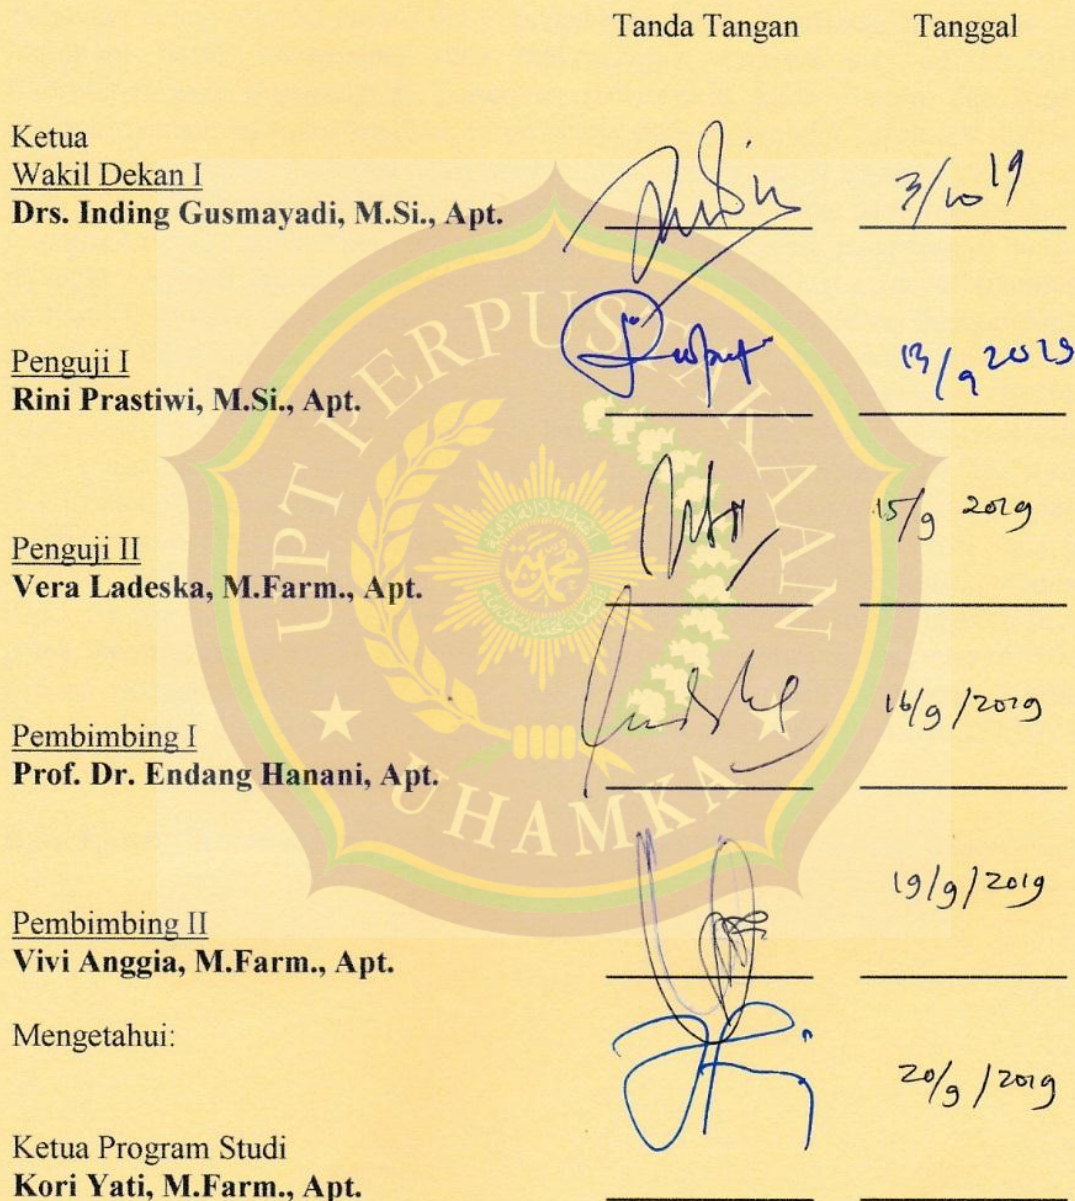 Tanda Tangan Tanggal
Ketua
Wakil Dekan I
Drs. Inding Gusmayadi, M.Si., Apt. 3/10 19
Penguji I
Rini Prastiwi, M.Si., Apt. 13/9 2019
Penguji II
Vera Ladeska, M.Farm., Apt. 15/9 2019
Pembimbing I
Prof. Dr. Endang Hanani, Apt. 16/9/2019
Pembimbing II
Vivi Anggia, M.Farm., Apt. 19/9/2019
Mengetahui:
20/9/2019
Ketua Program Studi
Kori Yati, M.Farm., Apt.
UPT PERPUSTAKAAN
UHAMKA